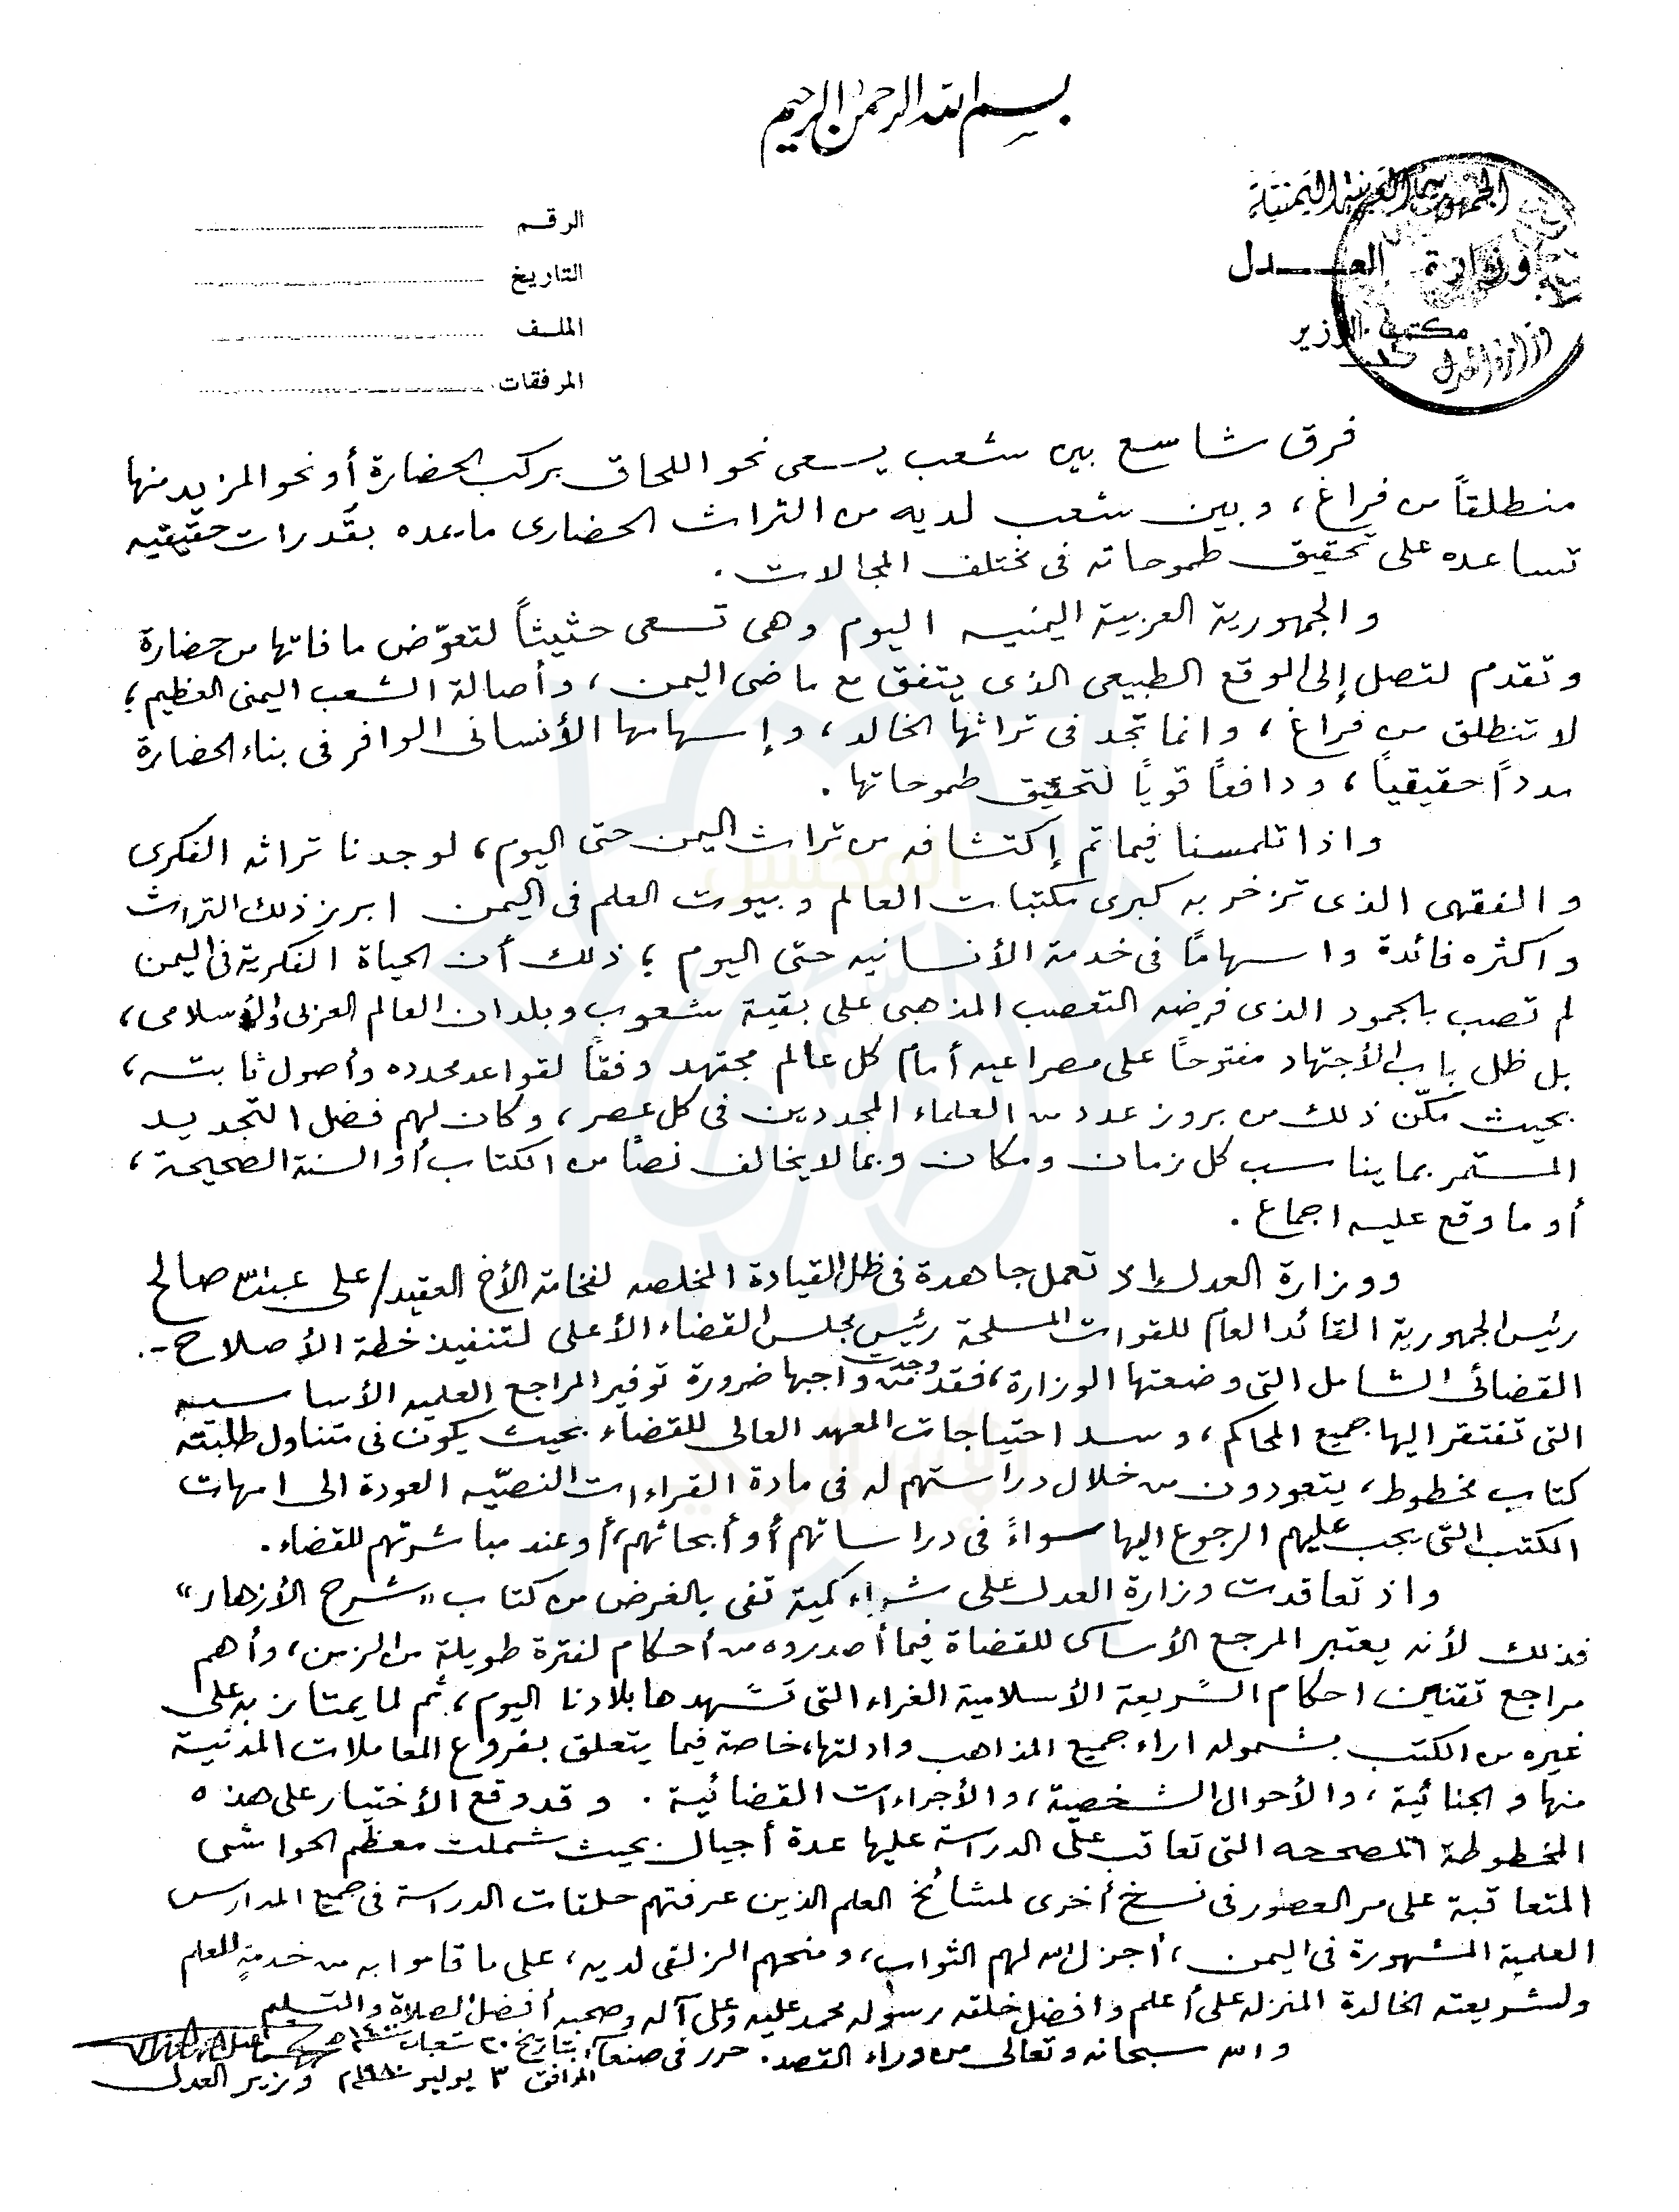 بسم الله الرحمن الرحيم
الجمهورية العربية اليمنية
وزارة العدل
مكتب الوزير
الرقم
التاريخ
الملف
المرفقات
فرق شاسع بين شعب يسعى نحو اللحاق بركب الحضارة أو نحو المزيد منها
منطلقاً من فراغ ، وبين شعب لديه من التراث الحضارى ما يمده بقدرات حقيقيه
تساعده على تحقيق طموحاته فى مختلف المجالات .
والجمهورية العربية اليمنيه اليوم وهى تسعى حثيثاً لتعوّض ما فاتها من حضارة
وتقدم لتصل إلى الوقع الطبيعى الذى يتفق مع ماضى اليمن ، وأصالة الشعب اليمنى العظيم ؛
لا تنطلق من فراغ ، وانما تجد فى تراثها الخالد ، وإسهامها الأنسانى الوافر فى بناء الحضارة
مدداً حقيقياً ، ودافعاً قوياً لتحقيق طموحاتها .
واذا تلمسنا فيما تم إكتشافه من تراث اليمن حتى اليوم ، لوجدنا تراثه الفكرى
والفقهى الذى تزخر به كبرى مكتبات العالم وبيوت العلم فى اليمن ابرز ذلك التراث
واكثره فائدة واسهامًا فى خدمة الأنسانيه حتى اليوم ؛ ذلك أن الحياة الفكرية فى اليمن
لم تصب بالجمود الذى فرضه التعصب المذهبى على بقية شعوب وبلدان العالم العربى والأسلامى ،
بل ظل باب الأجتهاد مفتوحاً على مصراعيه أمام كل عالم مجتهد وفقاً لقواعد محدده وأصول ثابته ،
بحيث مكّن ذلك من بروز عدد من العلماء المجددين فى كل عصر ، وكان لهم فضل التجديد
المستمر بما يناسب كل زمان ومكان وبما لا يخالف نصاً من الكتاب أو السنة الصحيحة ،
أو ما وقع عليه اجماع .
ووزارة العدل إذ تعمل جاهدة فى ظل القيادة المخلصه لفخامة الأخ العقيد/ على عبدالله صالح
رئيس الجمهورية القائد العام للقوات المسلحة رئيس مجلس القضاء الأعلى لتنفيذ خطة الأصلاح -.
القضائى الشامل التى وضعتها الوزارة ، فقد وجدت من واجبها ضرورة توفير المراجع العلميه الأساسيه
التى تفتقر اليها جميع المحاكم ، وسد احتياجات المعهد العالى للقضاء بحيث يكون فى متناول طلبته
كتاب مخطوط ، يتعودون من خلال دراستهم له فى مادة القراءات النصيّه العودة الى امهات
الكتب التى يجب عليهم الرجوع اليها سواءً فى دراساتهم أو أبحاثهم ، أو عند مباشرتهم للقضاء .
واذ تعاقدت وزارة العدل على شراء كمية تفى بالغرض من كتاب " شرح الأزهار "
فذلك لأنه يعتبر المرجع الأساسى للقضاة فيما أصدروه من أحكام لفترة طويلة من الزمن ، وأهم
مراجع تقنين احكام الشريعة الأسلامية الغراء التى تشهدها بلادنا اليوم ، ثم لما يمتاز به على
غيره من الكتب بشموله اراء جميع المذاهب وادلتها، خاصة فيما يتعلق بفروع المعاملات المدنية
منها والجنائية ، والأحوال الشخصية ، والأجراءات القضائية . وقد وقع الأختيار على هذه
المخطوطة المصححه التى تعاقب على الدراسة عليها عدة أجيال بحيث شملت معظم الحواشى
المتعاقبة على مر العصور فى نسخ أخرى لمشائخ العلم الذين عرفتهم حلقات الدراسة فى جميع المدارس
العلمية المشهورة فى اليمن ، أجزل الله لهم الثواب ، ومنحهم الزلفى لديه ، على ما قاموا به من خدمةٍ للعلم
ولشريعته الخالدة المنزله على أعلم وافضل خلقه رسوله محمد عليه وعلى آله وصحبه أفضل الصلاة والتسليم
والله سبحانه وتعالى من وراء القصد . حرر فى صنعاء بتاريخ ٢٠ شعبان ١٤٠٠هـ
الموافق ٣ يوليو ١٩٨٠م وزير العدل